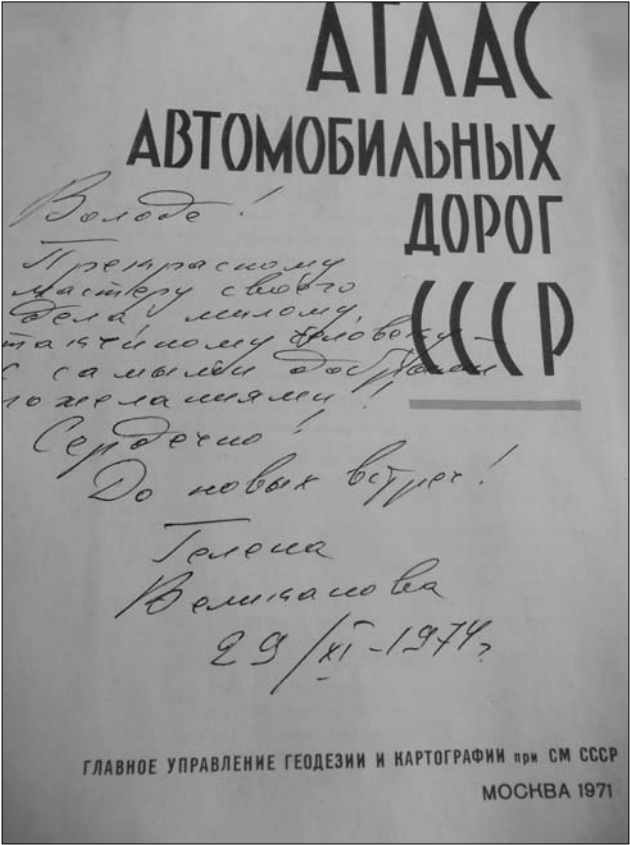 АТЛАС
АВТОМОБИЛЬНЫХ
ДОРОГ
СССР
Володе!
Прекрасному
мастеру своего
дела милому,
тактичному человеку –
с самыми добрыми
пожеланиями!
Сердечно!
До новых встреч!
Гелена
Великанова
29/XI–1974г.
ГЛАВНОЕ УПРАВЛЕНИЕ ГЕОДЕЗИИ И КАРТОГРАФИИ при СМ СССР
МОСКВА 1971